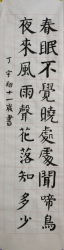 春眠不覺曉處處聞啼鳥
夜來風雨聲花落知多少
丁宇翎十一歲書